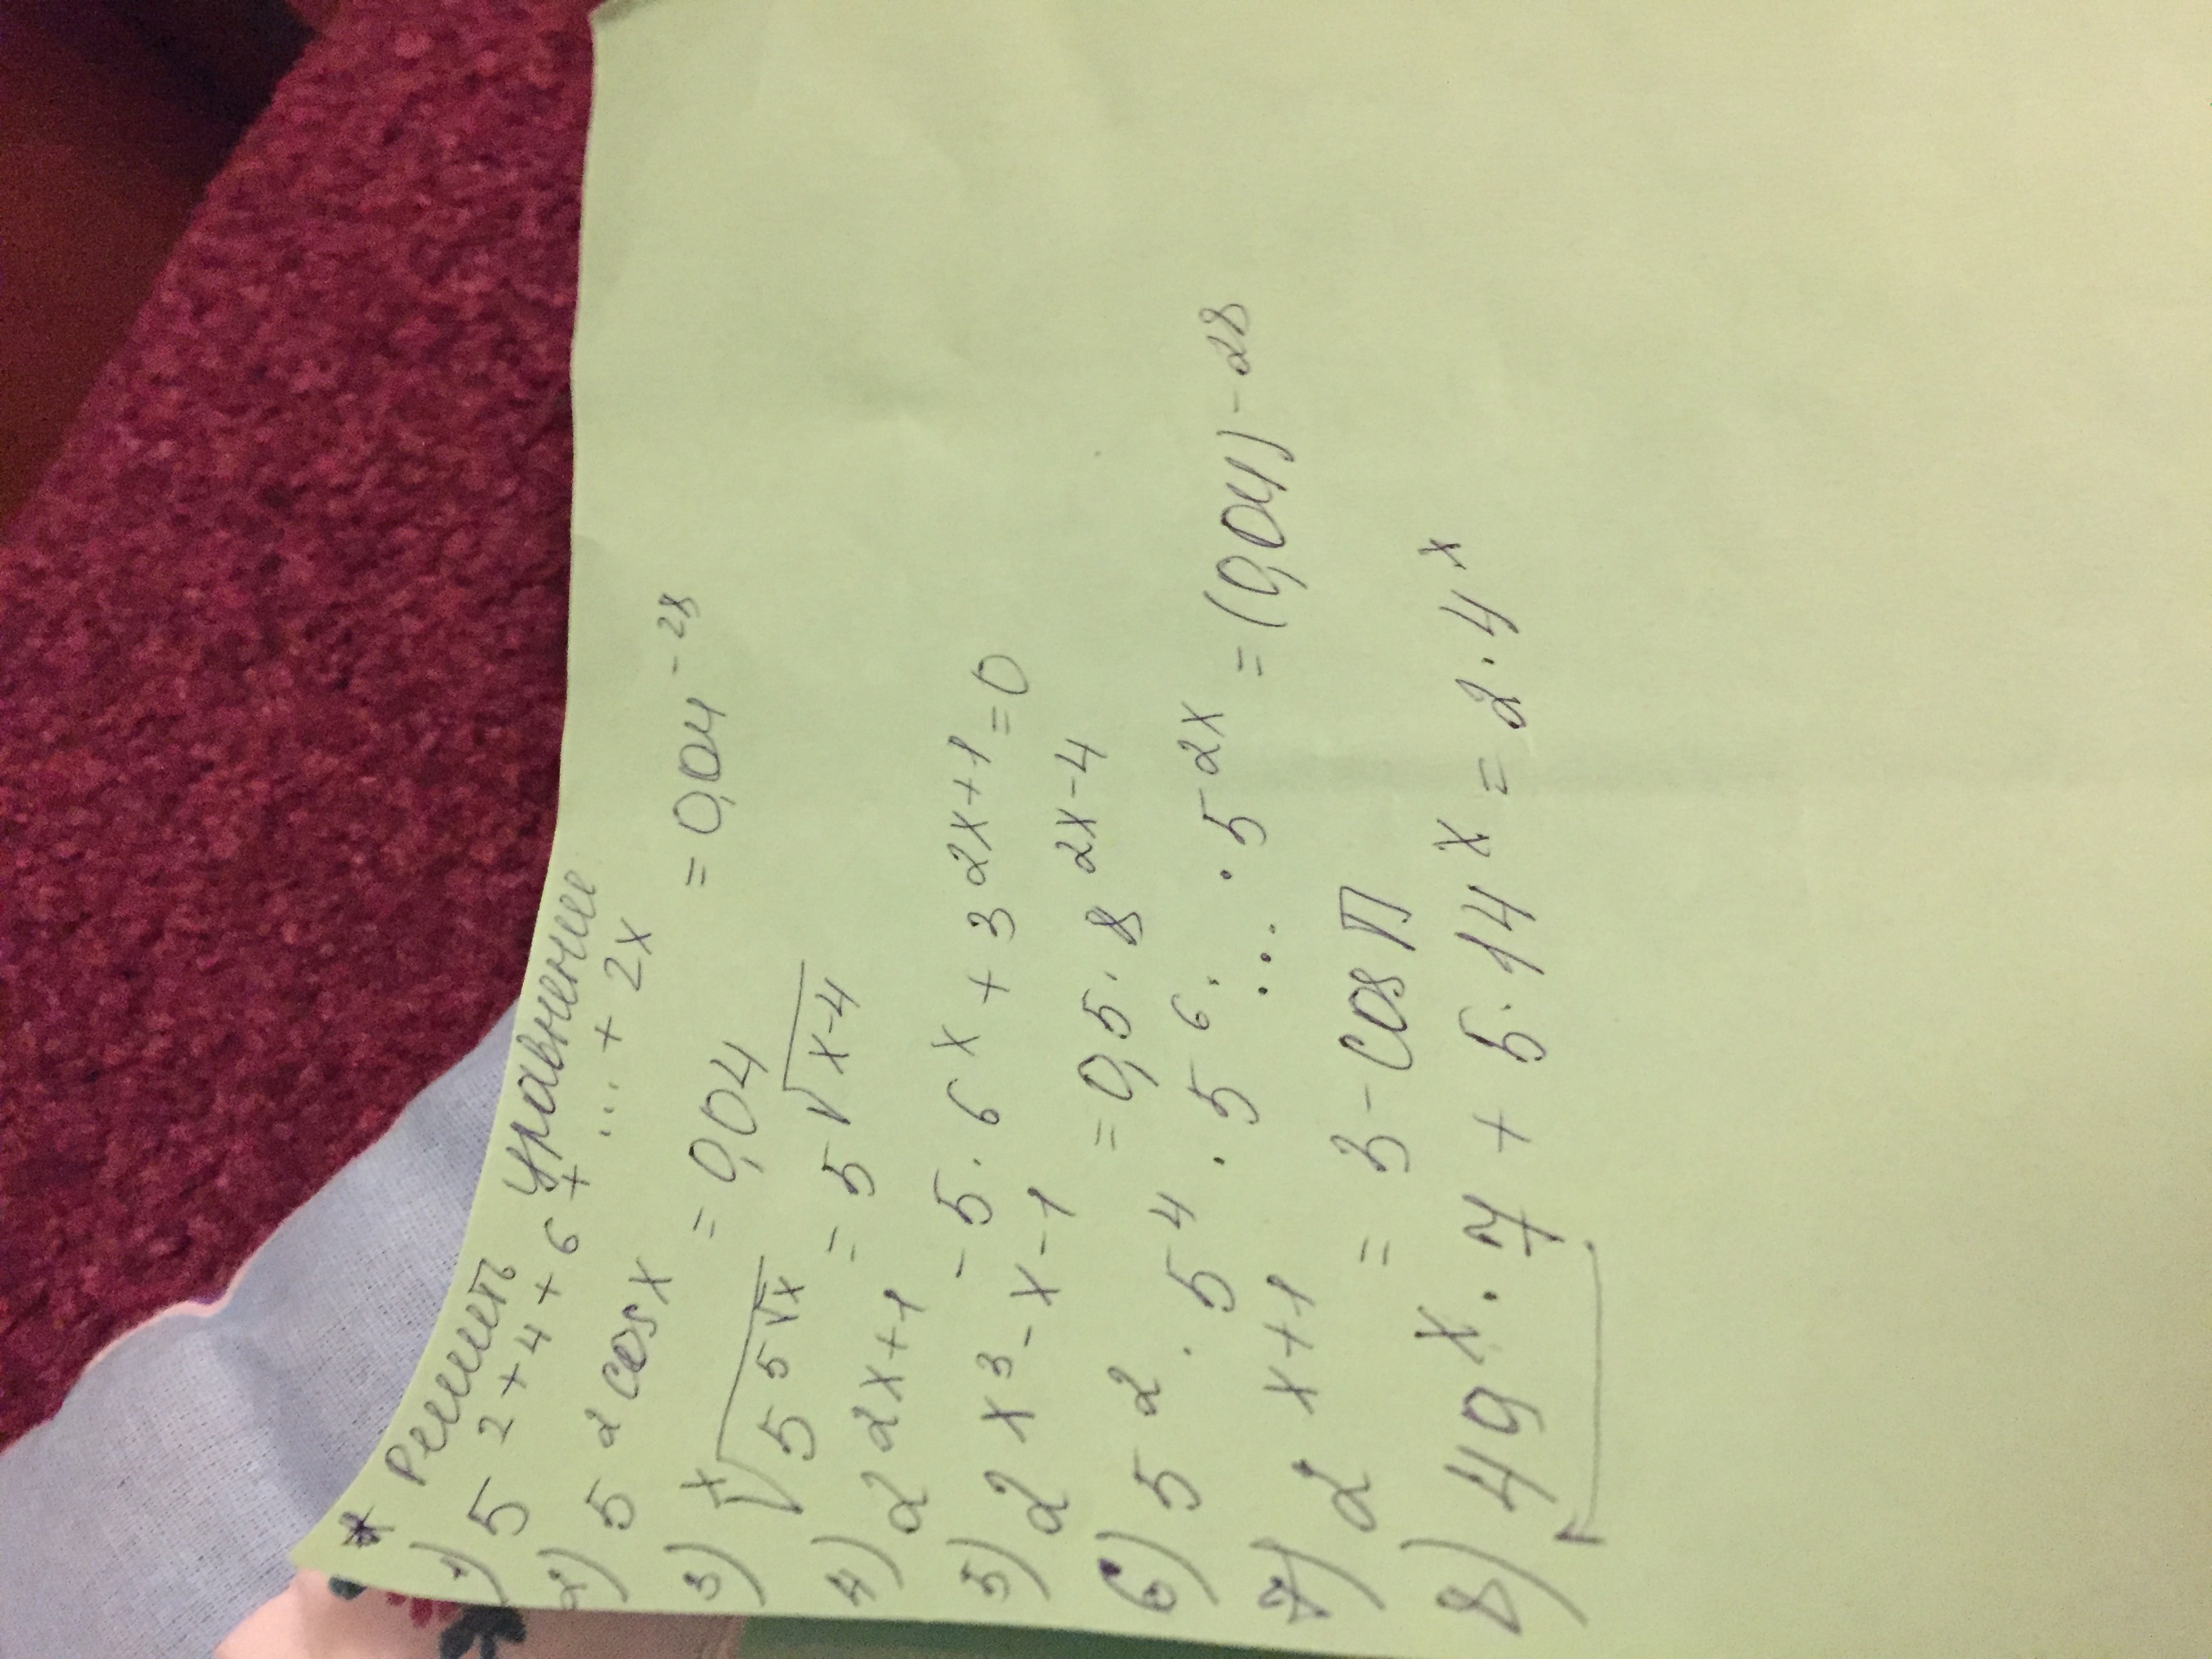 * Решить уравнение
1) 5^{2+4+6+...+2x} = 0,04^{-28}
2) 5^{2cosx} = 0,04
3) \sqrt[x]{5^{5^{\sqrt{x}}}} = 5^{\sqrt{x-4}}
4) 2^{2x+1} - 5·6^x + 3^{2x+1} = 0
5) 2^{x^3-x-1} = 0,5·8^{2x-4}
6) 5^2·5^4·5^6·...·5^{2x} = (0,04)^{-28}
7) 2^{x+1} = 3-cosП
8) 49^x·7+5·14^x = 2·4^x